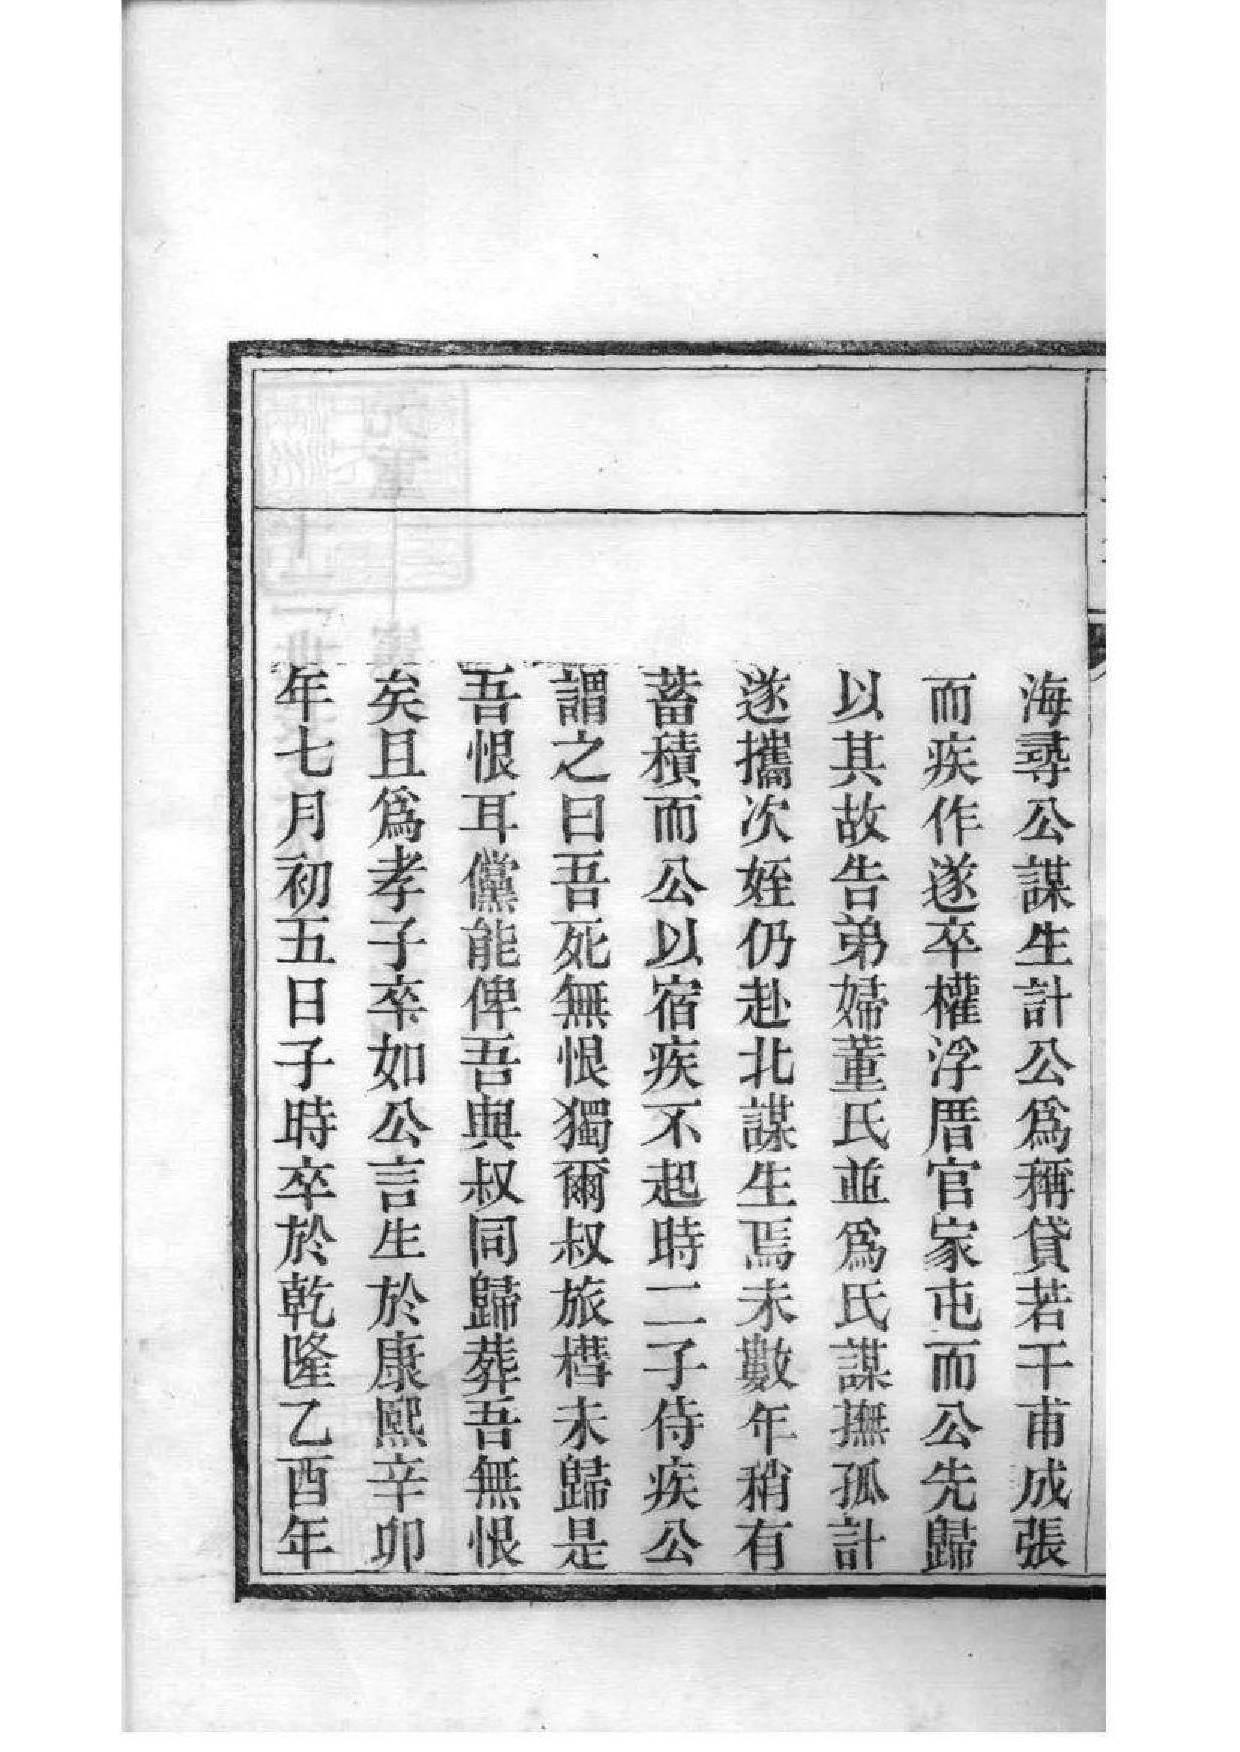 海尋公謀生計公爲稱貸若干甫成張
而疾作遂卒權浮厝官家屯而公先歸
以其故告弟婦董氏並爲氏謀撫孤計
遂攜次姪仍赴北謀生焉未數年稍有
蓄積而公以宿疾不起時二子侍疾公
謂之曰吾死無恨獨爾叔旅櫘未歸是
吾恨耳儻能俾吾與叔同歸葬吾無恨
矣且爲孝子卒如公言生於康熙辛卯
年七月初五日子時卒於乾隆乙酉年